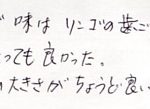 味は リンゴの歯ご
っても 良かった。
大きさが ちょうど 良い